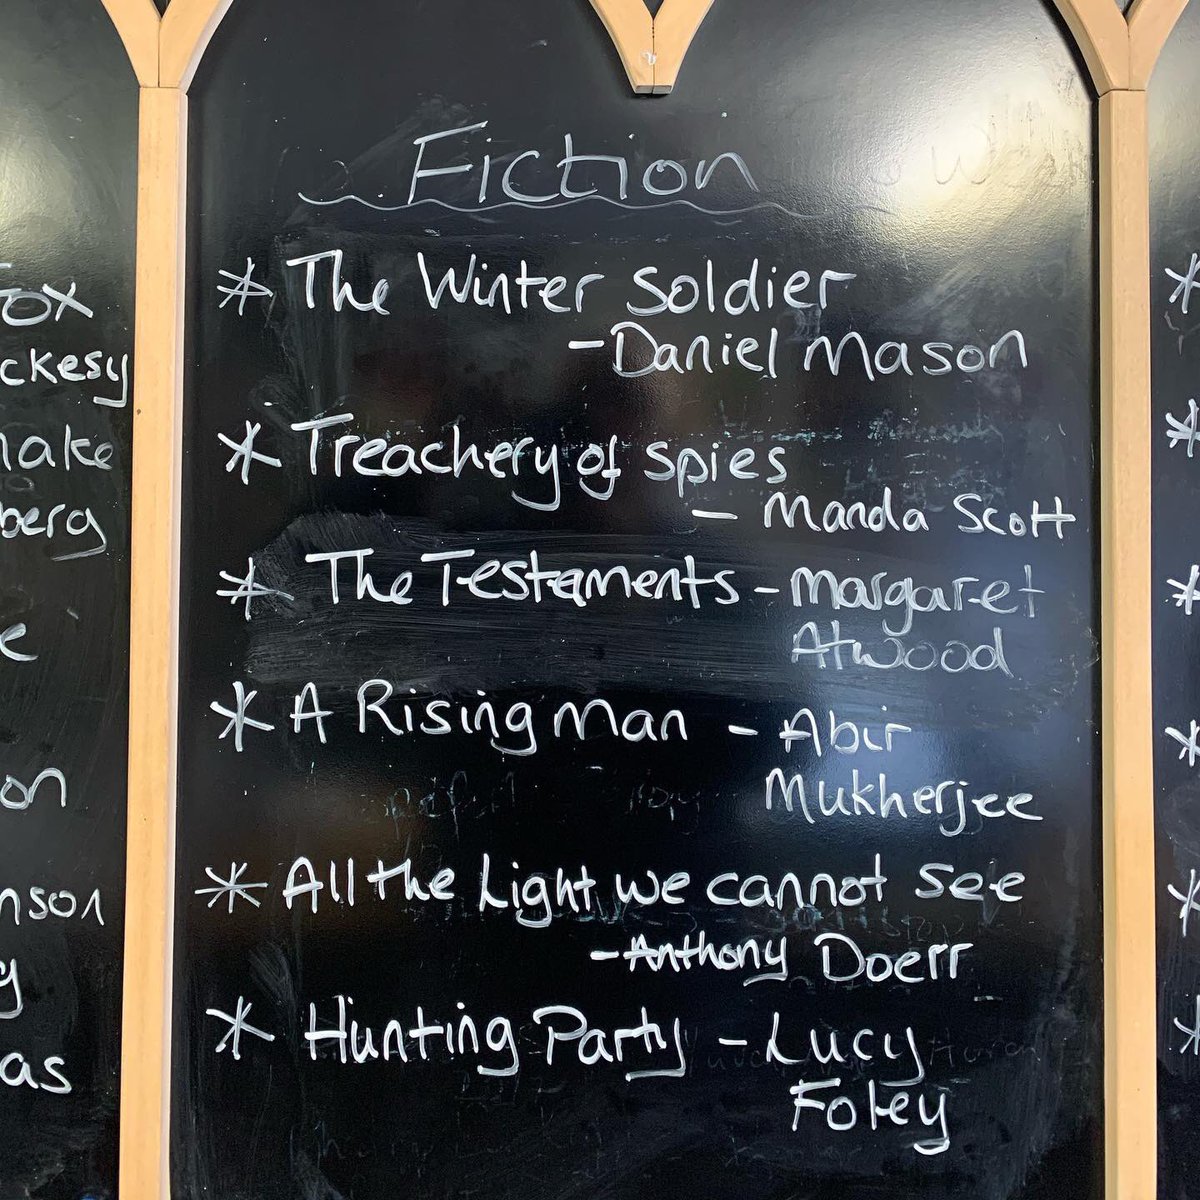 Fox
ckesy
nake
berg
e
on
nson
y
as
Fiction
* The Winter Soldier
- Daniel Mason
* Treachery of Spies
- Manda Scott
* The Testaments - Margaret
Atwood
* A Rising Man - Abir
Mukherjee
* All the Light we cannot see
- Anthony Doerr
* Hunting Party - Lucy
Foley
*
*
*
*
*
*